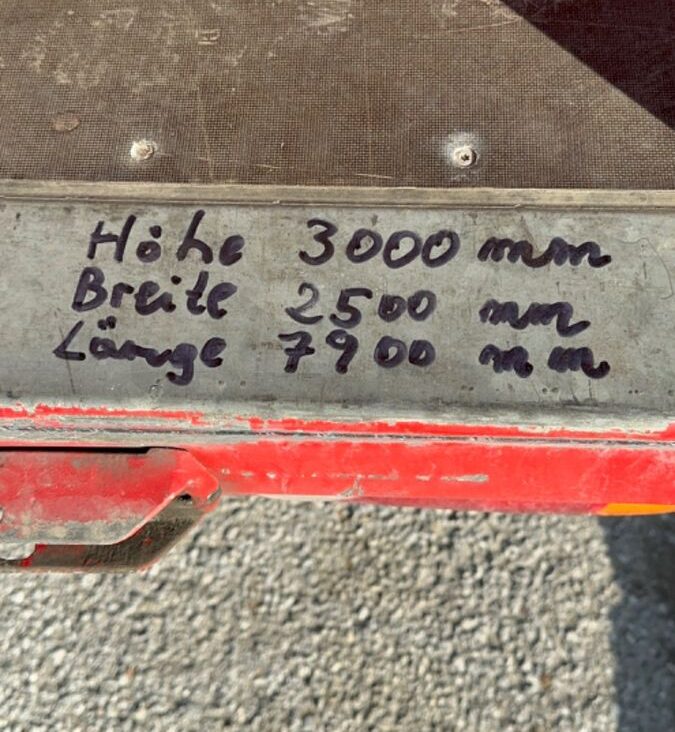 Höhe 3000 mm
Breite 2500 mm
Länge 7900 mm